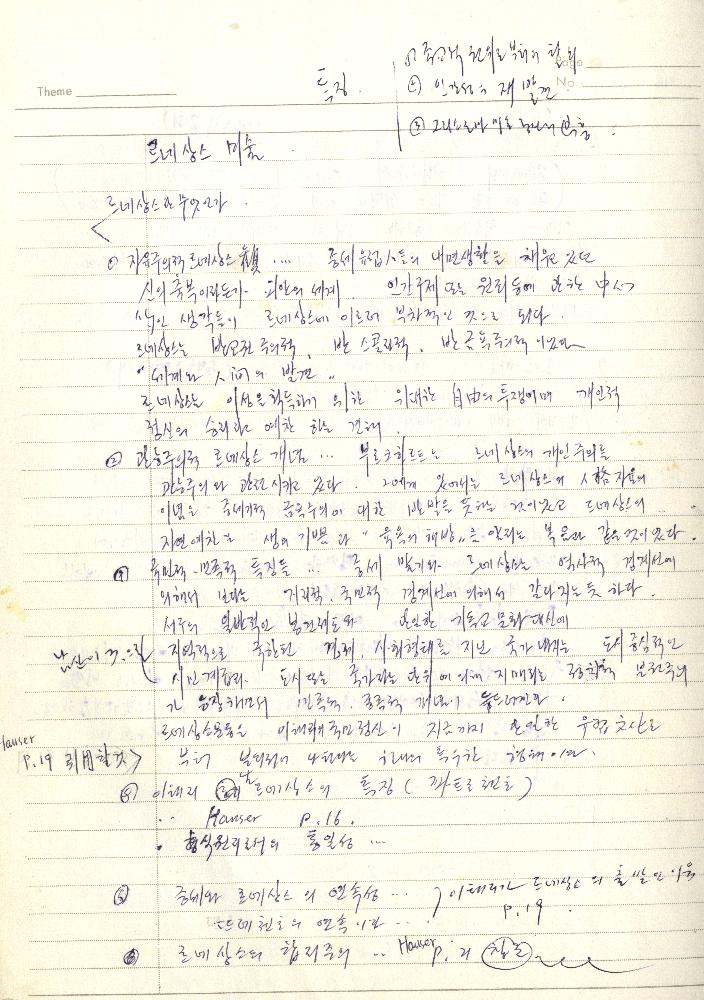 Theme
Page
No
특징.
① 중고적 권위로부터의 탈피
② 인간성의 재발견
③ 그리스로마 미로 부흥.
르네상스 미술.
르네상스란 무엇인가.
① 자유주의적 르네상스 観 .... 중세 유럽人들의 내면생활을 채우고 있던
신의 축복이라든가 피안의 세계, 인간구제 또는 원죄 등에 관한 中心
的인 생각들이 르네상스에 이르러 부차적인 것으로 되다.
르네상스는 반교권주의적, 반스콜라적, 반금욕주의적이었다
"세계와 人間의 발견"
르네상스는 이상을 획득하기 위한 위대한 自由의 투쟁이며 개인적
정신의 승리라고 예찬하는 견해.
② 관능주의적 르네상스 개념 ... 부르크하르트는 르네상스의 개인주의를
관능주의와 관련시키고 있다. 그에게 있어서는 르네상스의 人格 자유의
이념은 중세기적 금욕주의에 대한 반발을 뜻하는 것이었고 르네상스의
자연예찬은 생의 기쁨과 "육욕의 해방"을 알리는 복음과 같은 것이었다.
국민적·민족적 특징들 ... 중세 말기와 르네상스는 역사적 경계선에
의해서 보다는 지리적, 국민적 경계선에 의해서 갈라지는 듯 하다.
서구의 일반적인 봉건제도와 기독교 문화 대신에
지역적으로 국한된 경제, 사회형태를 지닌 국가 내지는 도시 중심적인
시민계급과 도시 또는 국가라는 단위에 의해 지배되는
가 등장하면서 민족적, 종족적 개념이 뚜드러진다.
르네상스운동은 이태리의 국민정신이 지금까지 유럽
부터 분리되어 나타나는 하나의 특수한 형태이다.
Hauser
P.19 引用할 것
이태리 르네상스의 특징 (콰트로첸토)
.. Hauser P.16.
• 형식원리로서의 통일성 ...
⑤ 중세와 르네상스의 연속성 ...
뜨레첸토의 연속이다 ...
이태리가 르네상스의 출발인 이유
P.19.
⑥ 르네상스의 합리주의 .. Hauser P. 21 참조